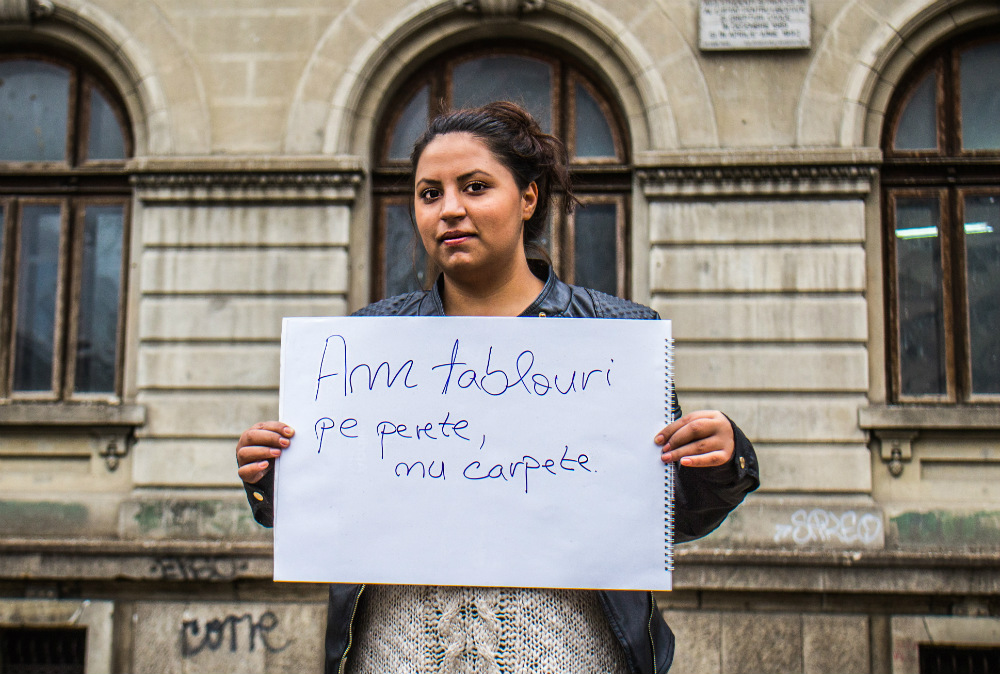 Am tablouri
pe perete,
nu carpete.
come